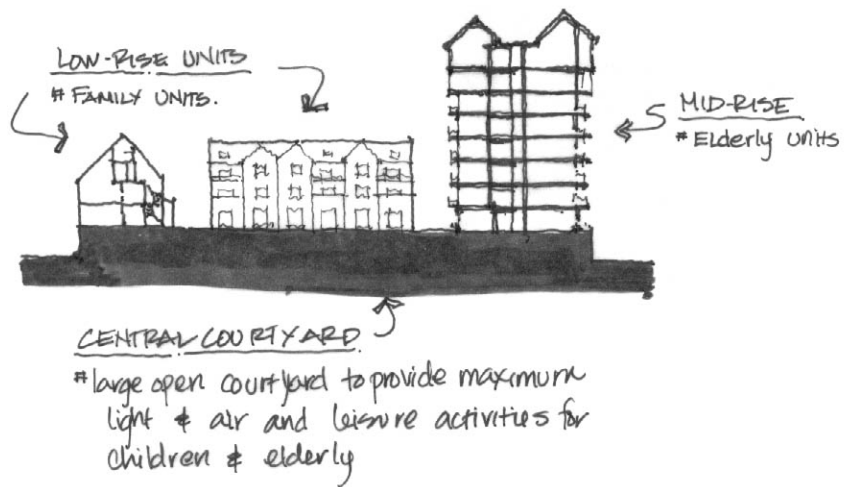 LOW-RISE UNITS
# FAMILY UNITS.
MID-RISE
# Elderly units
CENTRAL COURTYARD
# large open courtyard to provide maximum
light & air and leisure activities for
children & elderly